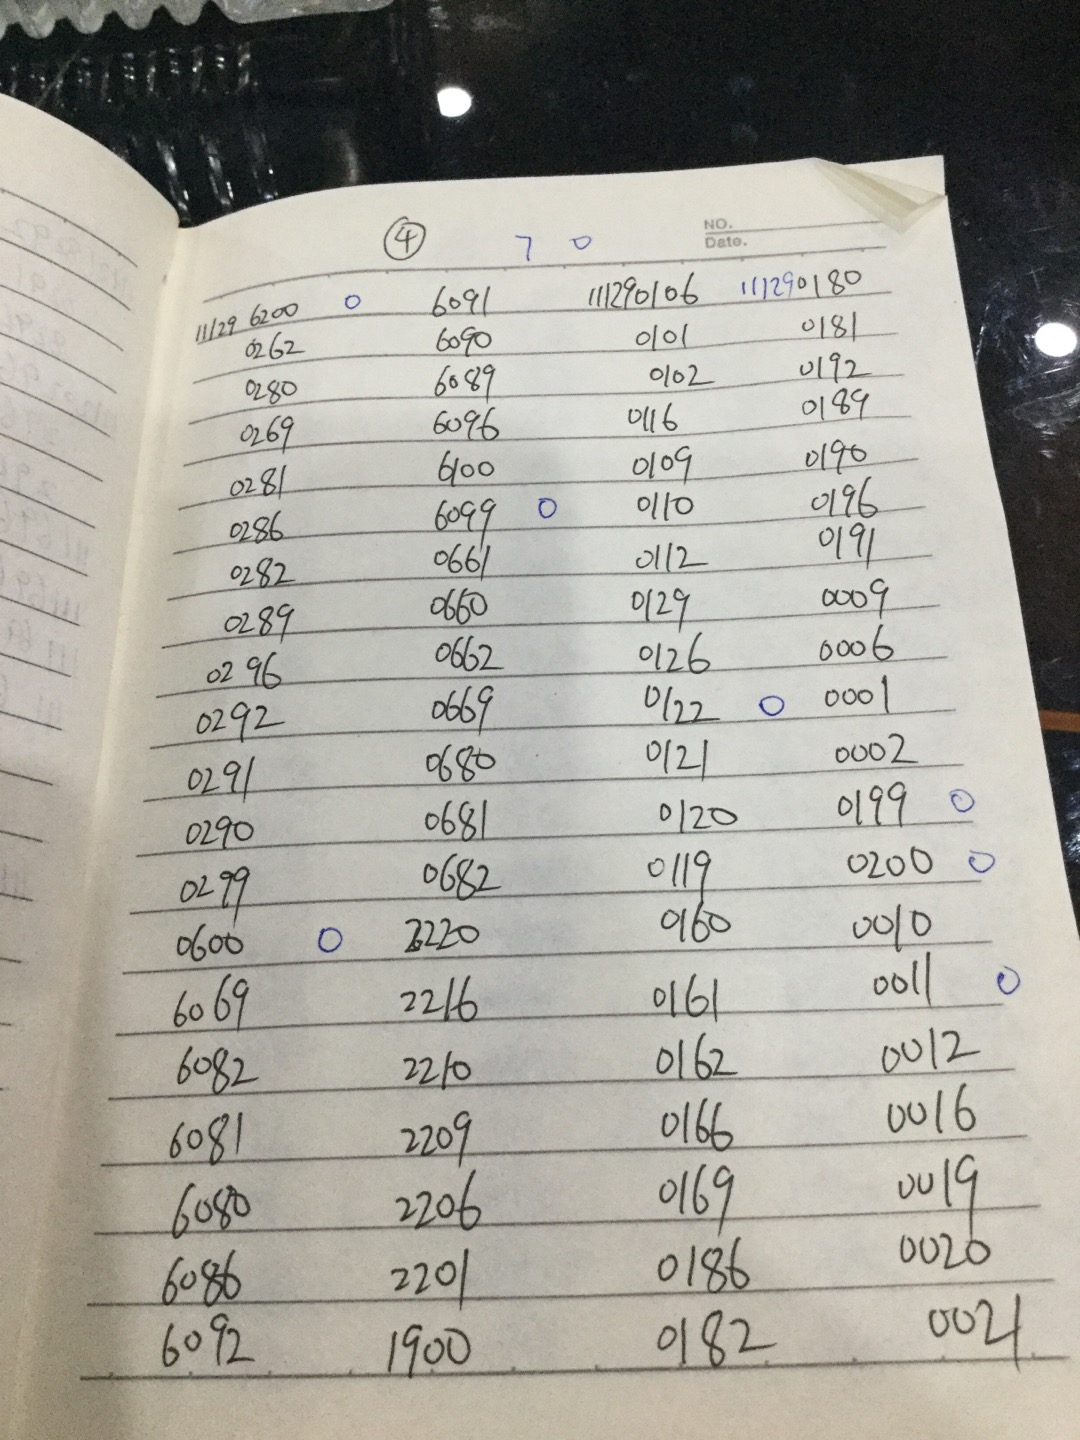 ④ 7 0 NO.
Date.
11129 6200 0 6091 111290106 111290180
0262 6090 0101 0181
0280 6089 0102 0192
0269 6096 0116 0189
0281 6100 0109 0190
0286 6099 0 0110 0196
0282 0661 0112 0191
0289 0660 0129 0009
0296 0662 0126 0006
0292 0669 0122 0 0001
0291 0680 0121 0002
0290 0681 0120 0199 0
0299 0682 0119 0200 0
0600 0 2220 0160 0010
6069 2216 0161 0011 0
6082 2210 0162 0012
6081 2209 0166 0016
6080 2206 0169 0019
6086 2201 0186 0020
6092 1900 0182 0021